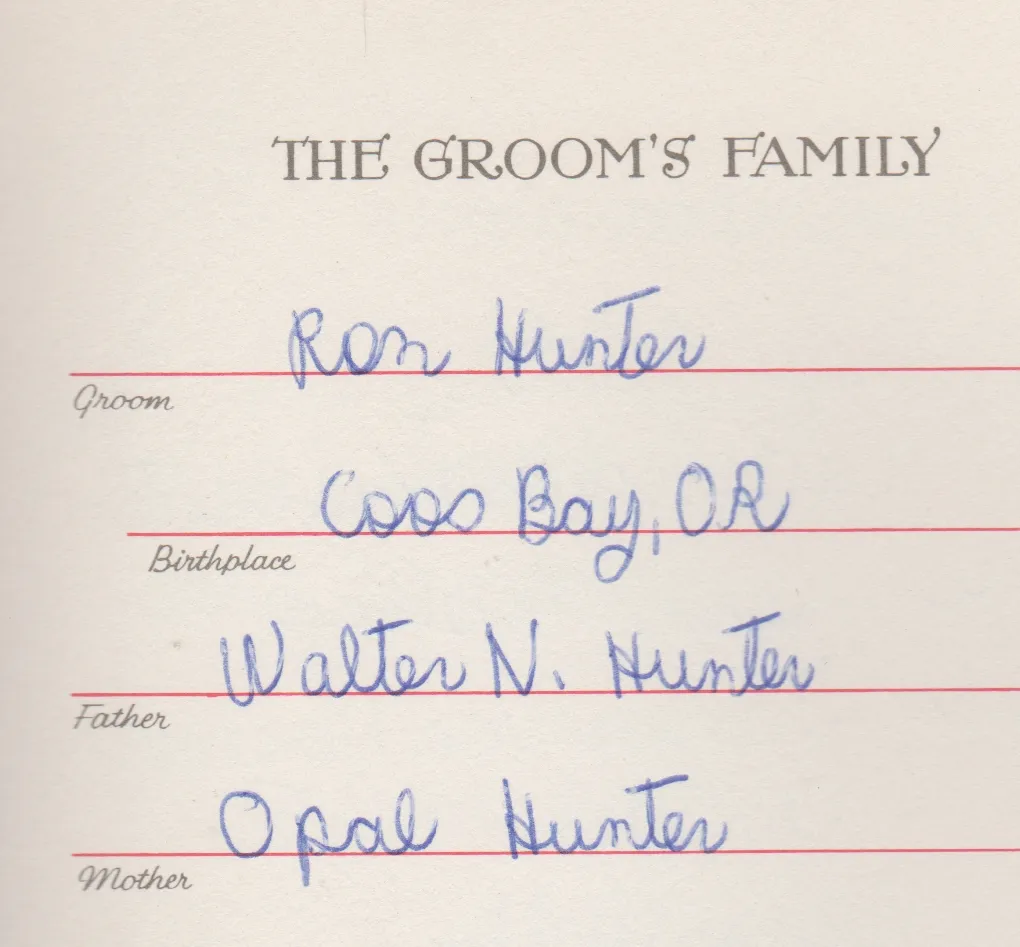 THE GROOM'S FAMILY
Ron Hunter
Groom
Coos Bay, OR
Birthplace
Walter N. Hunter
Father
Opal Hunter
Mother